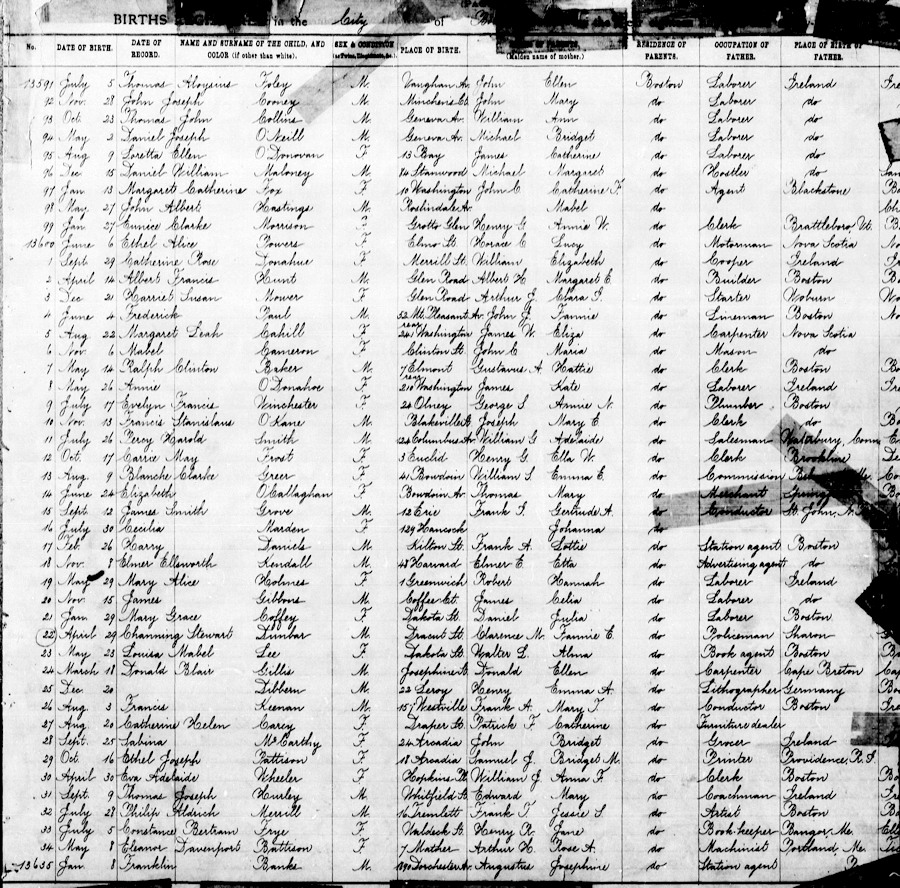 BIRTHS in the City of
No. DATE OF BIRTH. DATE OF RECORD. NAME AND SURNAME OF THE CHILD, AND COLOR (if other than white). SEX & CONDITION (as Twins, Illegitimate, &c.) PLACE OF BIRTH. (Maiden name of mother.) RESIDENCE OF PARENTS. OCCUPATION OF FATHER. PLACE OF BIRTH OF FATHER.
13591 July 5 Thomas Aloysius Foley M. Vaughan Av. John Ellen Boston Laborer Ireland
12 Nov. 28 John Joseph Cooney M. John Mary do Laborer do
93 Oct. 23 Thomas John Collins M. Geneva Av. William Ann do Laborer do
94 May 2 Daniel Joseph O'Neill M. Geneva Av. Michael Bridget do Laborer do
95 Aug 9 Loretta Ellen O'Donovan F. 13 Bay James Catherine do Laborer do
96 Dec 15 Daniel William Maloney M. 84 Stanwood Michael Margaret do Hostler do
97 Jan. 13 Margaret Catherine Fox F. 10 Washington John C Catherine F. do Agent Blackstone
98 May 27 John Albert Hastings M. Roslindale Av. Mabel do
99 Jan. 27 Eunice Clarke Morrison F. Grotto Glen Henry G Annie W. do Clerk Brattleboro, Vt.
13600 June 6 Ethel Alice Powers F. Elmo St. Horace C Lucy do Motorman Nova Scotia
1 Sept. 29 Catherine Rose Donahue F. Merrill St. William Elizabeth do Cooper Ireland
2 April 14 Albert Francis Hunt M. Glen Road Albert H Margaret E. do Builder Boston
3 Dec 21 Harriet Susan Mower F. Glen Road Arthur J. Clara S. do Starter Woburn
4 June 4 Frederick Paul M. 52 Mt. Pleasant Av. John J. Fannie do Lineman Boston
5 Aug 22 Margaret Leah Cahill F. rear 241 Washington James W. Eliza do Carpenter Nova Scotia
6 Nov. 6 Mabel Cameron F. Clinton St. John C Maria do Mason do
7 May 14 Ralph Clinton Baker M. 7 Elmont Gustavus A Hattie do Clerk Boston
8 May 26 Annie O'Donahoe F. rear 210 Washington James Kate do Laborer Ireland
9 July 17 Evelyn Francis Winchester F. 24 Olney George S. Annie N. do Plumber Boston
10 Nov. 13 Francis Stanislaus O'Kane M. Blakeville St. Joseph Mary E do Clerk do
11 July 26 Percy Harold Smith M. 124 Columbus Av. William G Adelaide do Salesman Waterbury, Conn.
12 Oct. 17 Carrie May Frost F. 3 Euclid Henry G Ella W. do Clerk Brookline
13 Aug. 9 Blanche Clarke Greer F. 41 Bowdoin William S. Emma E. do Commission Me.
14 June 24 Elizabeth O'Callaghan F. Bowdoin Av. Thomas Mary do Merchant Spring
15 Sept. 12 James Smith Grove M. 12 Erie Frank S. Gertrude A. do Conductor St. John, N.
16 July 30 Cecilia Marden F. 129 Hancock Johanna do
17 Feb. 26 Harry Daniels M. Kilton St. Frank A. Lottie do Station agent Boston
18 Nov. 8 Elmer Ellsworth Kendall M. 48 Harvard Elmer E. Etta do Advertising agent do
19 May 29 Mary Alice Holmes F. 1 Greenwich Robert Hannah do Laborer Ireland
20 Nov. 15 James Gibbons M. Coffee Ct. James Celia do Laborer do
21 Jan 29 Mary Grace Coffey F. Dakota St. Daniel Julia do Laborer Boston
22 April 29 Channing Stewart Dunbar M. Dracut St. Clarence M. Fannie E. do Policeman Sharon
23 May 23 Louisa Mabel Lee F. Dakota St. Walter L. Alma do Book agent Boston
24 March 18 Donald Blair Gillis M. Josephine St. Donald Ellen do Carpenter Cape Breton
25 Dec. 20 Dibbern M. 22 Leroy Henry Emma A. do Lithographer Germany
26 Aug 3 Francis Keenan M. 157 Westville Frank A. Mary T. do Conductor Boston
27 Aug. 20 Catherine Helen Carey F. Draper St. Patrick F. Catherine do Furniture dealer
28 Sept. 25 Sabina McCarthy F. 24 Arcadia John Bridget do Grocer Ireland
29 Oct. 16 Ethel Joseph Pattison F. 18 Arcadia Samuel J. Bridget M. do Printer Providence, R.I.
30 April 30 Eva Adelaide Wheeler F. Hopkins Pl. William J. Anna F. do Clerk Boston
31 Sept. 9 Thomas Joseph Hurley M. Whitfield St. Edward Mary do Coachman Ireland
32 July 28 Philip Aldrich Merrill M. 16 Tremlett Frank T. Jessie S. do Artist Boston
33 July 5 Constance Bertram Frye F. Waldeck St. Henry R. Jane do Book-keeper Bangor, Me.
34 May 8 Eleanor Davenport Battison F. 7 Mather Arthur H. Rose A. do Machinist Portland Me.
13635 Jan. 8 Franklin Banks M. Dorchester Av. Augustus Josephine do Station agent